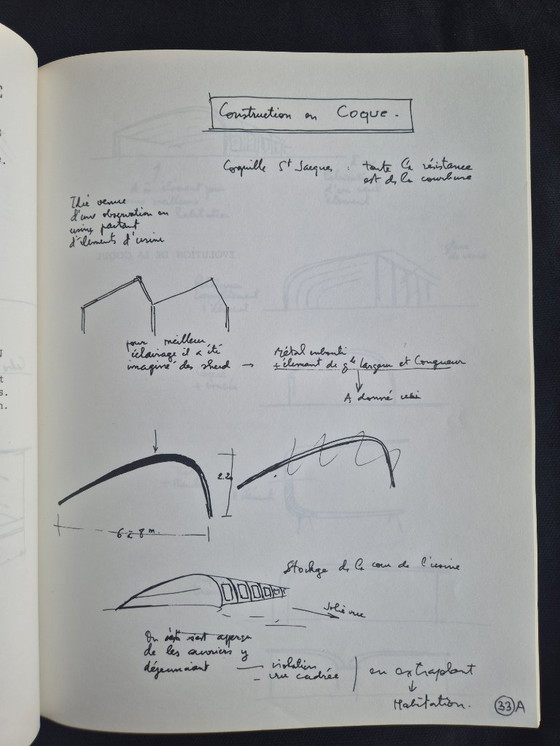 Construction en Coque.
Coquille St Jacques : toute la résistance
est ds la courbure
Idée venue
d'une observation en
usine partant
d'éléments d'usine
pour meilleur
éclairage il a été
imaginé des shed →
Métal embouti
+ élément de gde largeur et longueur
A donné ceci
2.20
6 à 8 m.
Stockage ds la cour de l'usine
Jolie vue
On s'est aperçu
de les ouvriers y
déjeunaient
— isolation
— vue cadrée
en extrapolant
Habitation.
33 A